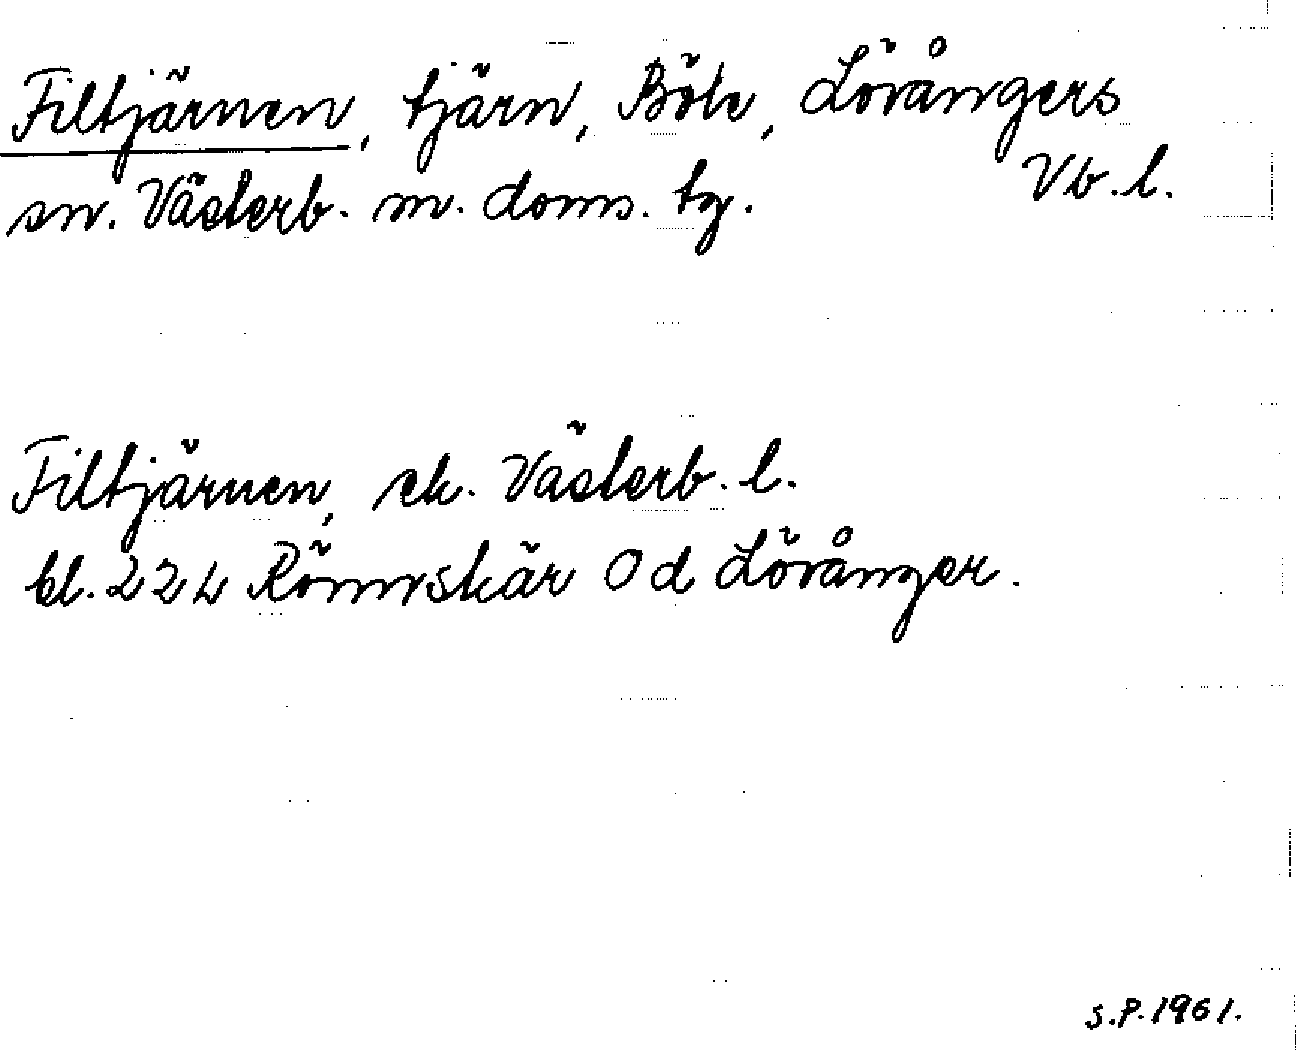 Filtjärnen, tjärn, Böle, Lövångers
sn. Västerb. m. doms. tg. Vb.l.
Filtjärnen, ek. Västerb. l.
bl. 22 L Rönnskär Od Lövånger.
S.P.1961.